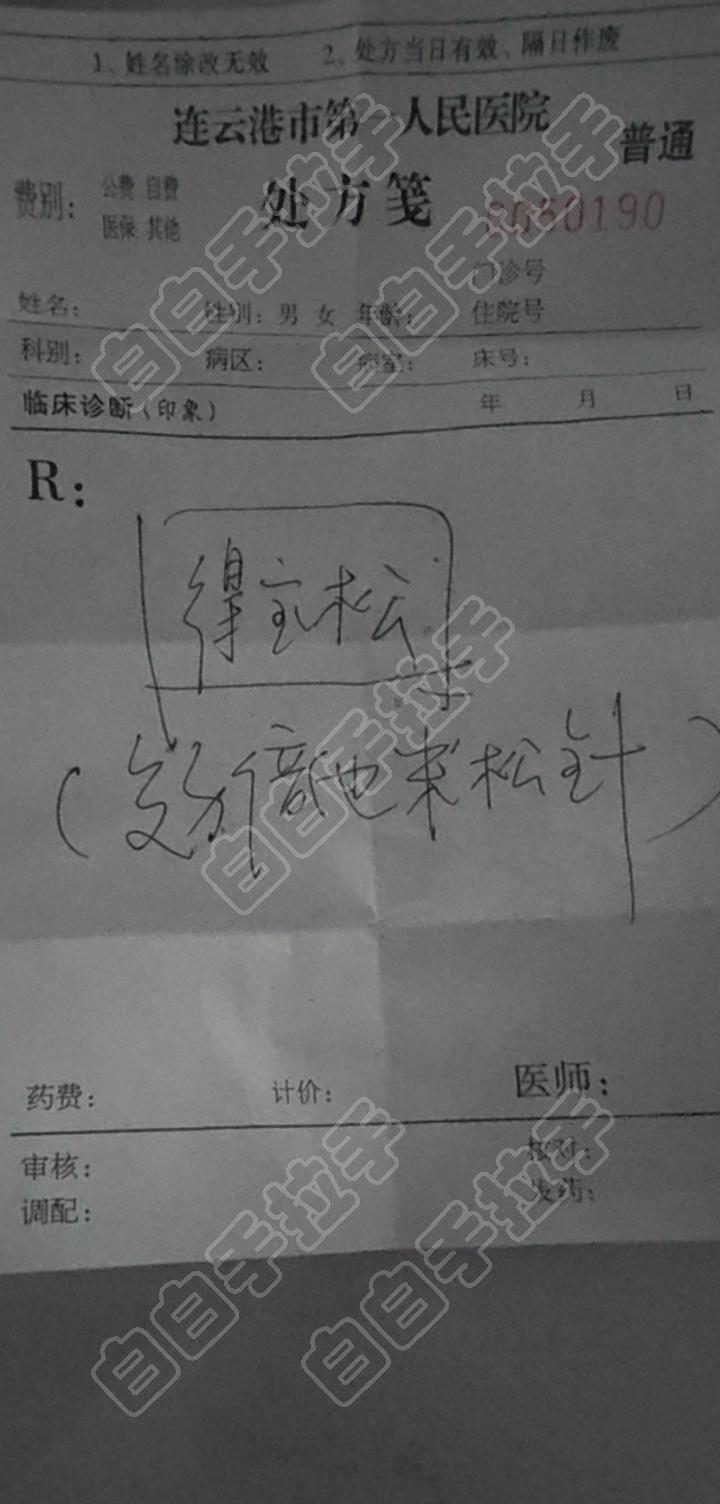 1、姓名涂改无效 2、处方当日有效、隔日作废
连云港市第一人民医院
普通
费别: 公费 自费
医保 其他
处方笺
0050190
门诊号
姓名: 性别: 男 女 年龄: 住院号
科别: 病区: 病室: 床号:
临床诊断(印象) 年 月 日
R:
得宝松
(复方倍他米松针)
药费: 计价: 医师:
审核: 核对:
调配: 发药:
白白手拉手
白白手拉手
白白手拉手
白白手拉手
白白手拉手
白白手拉手